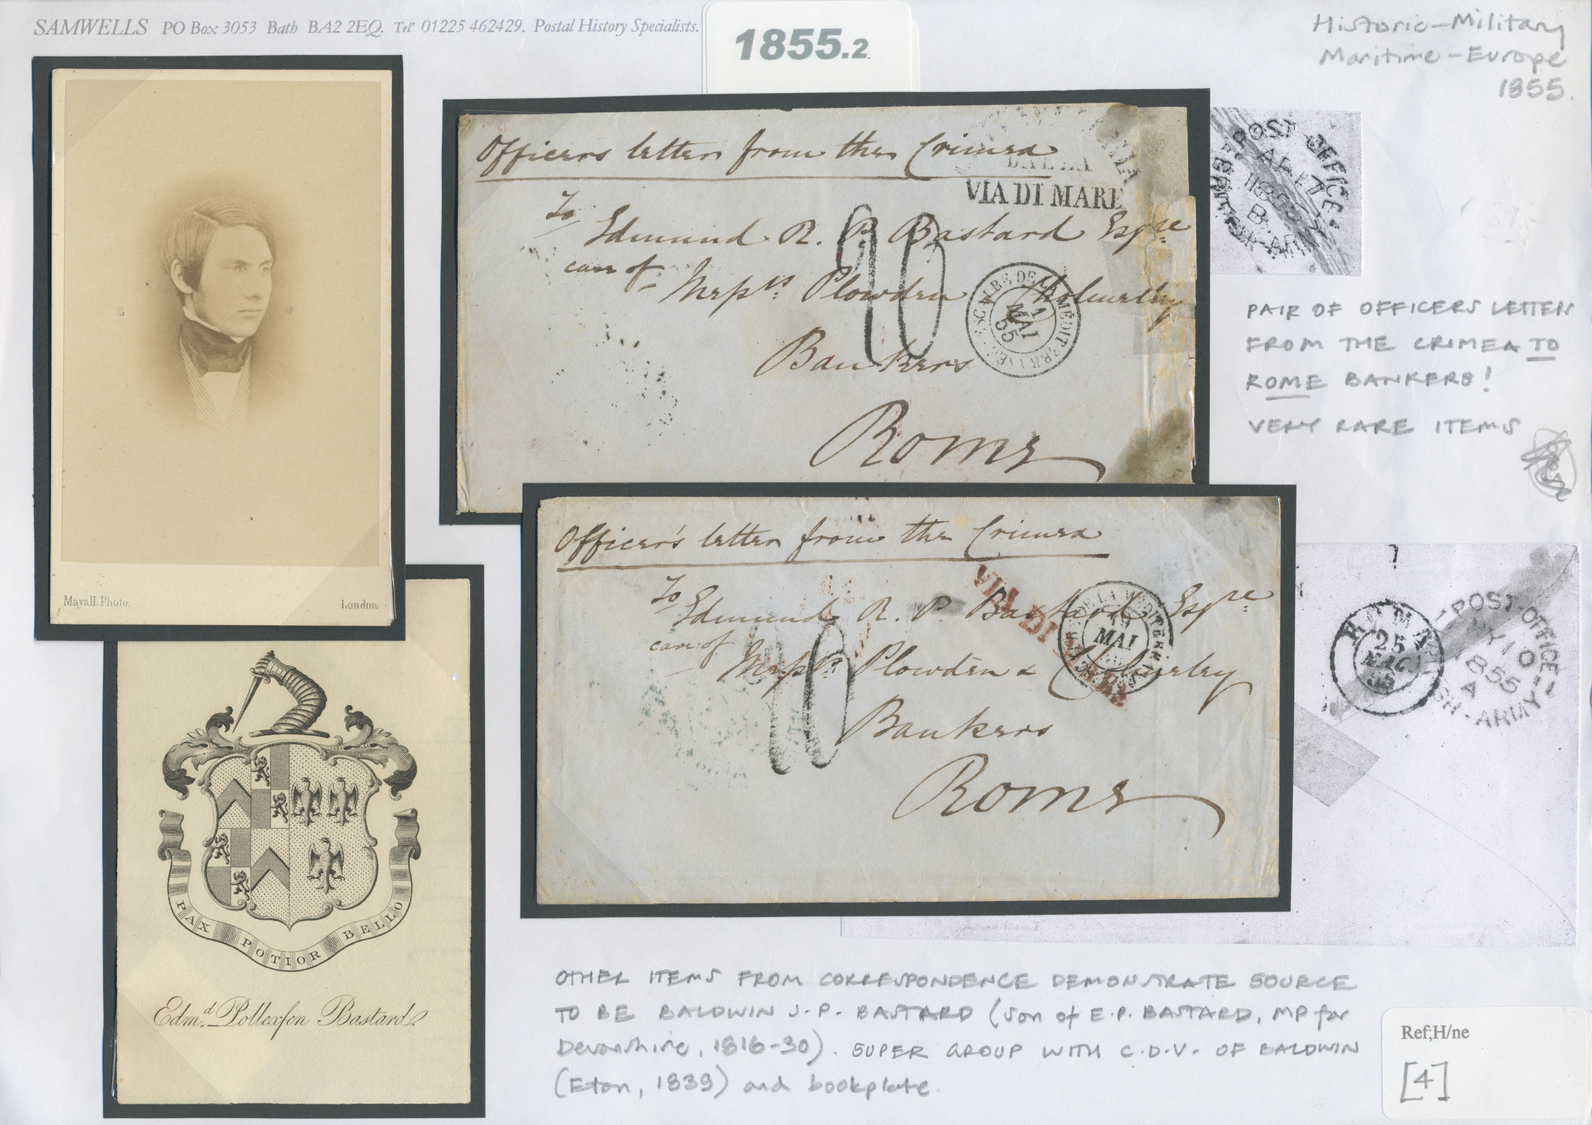 SAMWELLS PO Box 3053 Bath BA2 2EQ. Tel' 01225 462429. Postal History Specialists.
1855.2
Historic-Military
Maritime-Europe
1855.
Mayall.Photo. London
Officers letter from the Crimea
VIA DI MARE
To
Edmund R. P. Bastard Esqre
care of
Messrs Plowden Cholmeley
Bankers
Rome
ESCALE DE LA MEDITERRANEE
1
MAI
55
POST-OFFICE
AP 17
1855
B
PAIR OF OFFICERS LETTERS
FROM THE CRIMEA TO
ROME BANKERS!
VERY RARE ITEMS
Officer's letter from the Crimea
To
Edmund R. P. Bastard Esqre
care of
Messrs Plowden & Cholmeley
Bankers
Rome
VIA DI MARE
DE LA MEDITERR
19
MAI
ROMA
25
MAG
55
POST-OFFICE
MY 10
1855
A
SH-ARMY
PAX POTIOR BELLO
Edmd. Pollexfen Bastard.
OTHER ITEMS FROM CORRESPONDENCE DEMONSTRATE SOURCE
TO BE BALDWIN J.P. BASTARD (son of E.P. BASTARD, MP for
Devonshire, 1816-30). SUPER GROUP WITH C.D.V. OF BALDWIN
(Eton, 1839) and bookplate.
Ref;H/ne
[4]